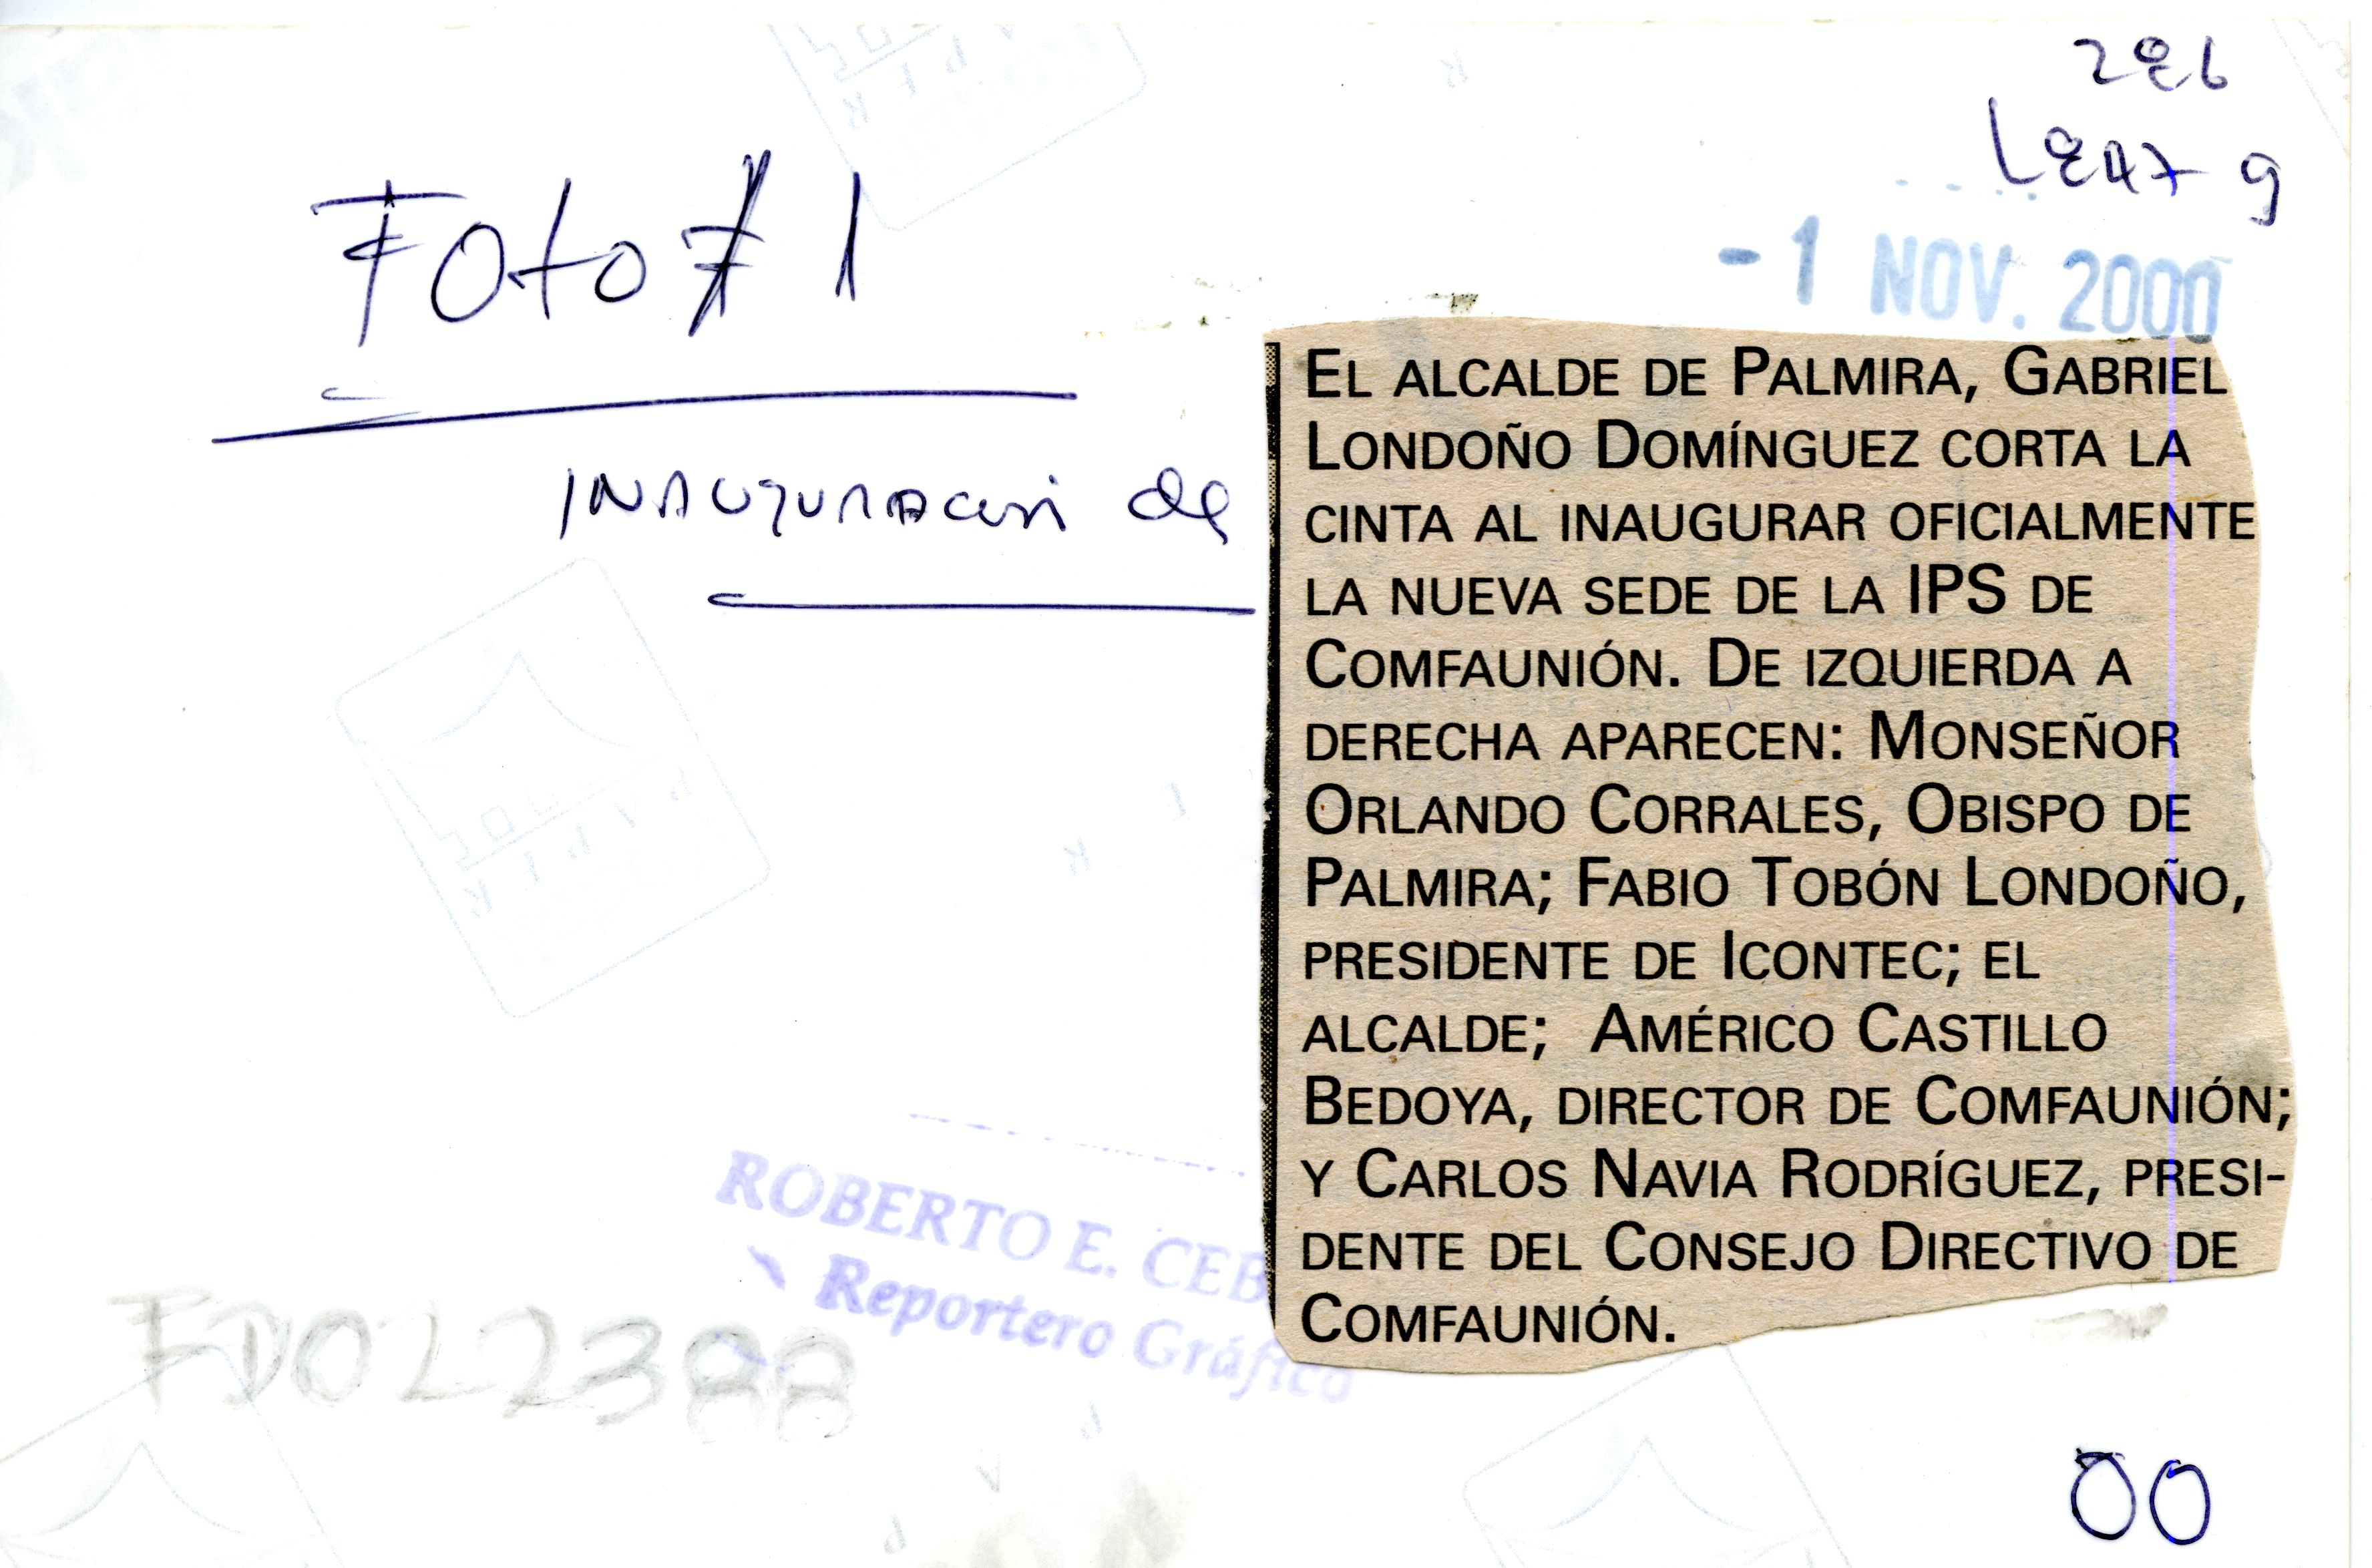 Foto # 1
Inauguración de
- 1 NOV. 2000
EL ALCALDE DE PALMIRA, GABRIEL
LONDOÑO DOMÍNGUEZ CORTA LA
CINTA AL INAUGURAR OFICIALMENTE
LA NUEVA SEDE DE LA IPS DE
COMFAUNIÓN. DE IZQUIERDA A
DERECHA APARECEN: MONSEÑOR
ORLANDO CORRALES, OBISPO DE
PALMIRA; FABIO TOBÓN LONDOÑO,
PRESIDENTE DE ICONTEC; EL
ALCALDE; AMÉRICO CASTILLO
BEDOYA, DIRECTOR DE COMFAUNIÓN;
Y CARLOS NAVIA RODRÍGUEZ, PRESI-
DENTE DEL CONSEJO DIRECTIVO DE
COMFAUNIÓN.
ROBERTO E. CEB
Reportero Gráfico
00